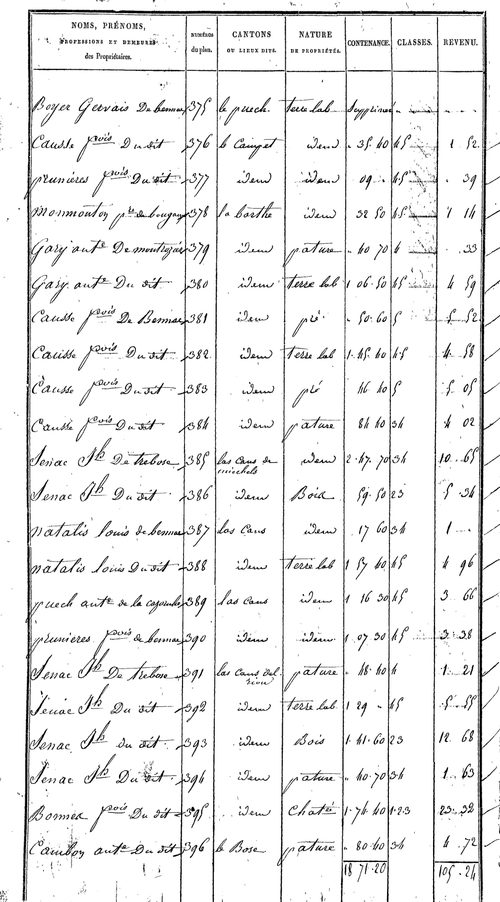 NOMS, PRÉNOMS, PROFESSIONS ET DEMEURES des Propriétaires. NUMÉROS du plan. CANTONS OU LIEUX DITS. NATURE DE PROPRIÉTÉS. CONTENANCE. CLASSES. REVENU.
Boyer Gervais De bennac 375 le puech terre lab supprimé
Causse pois Du dit 376 le Camp idem " 35. 40 45 1 52
prunières pois Du dit 377 idem idem 09 " 45 . 39
monmouton pre de 378 la barthe idem 32 50 45 1 14
Gary ant De 379 idem pature " 40 70 4 . 33
Gary ant Du dit 380 idem terre lab 1 06. 50 45 4 59
Causse pois De Bennac 381 idem pré " 50. 60 5 5 52
Causse pois Du dit 382 idem terre lab 1. 45. 40 45 4. 58
Causse pois Du dit 383 idem pré 46 40 5 5 05
Causse pois Du dit 384 idem pature 84 40 34 4 02
Senac Jh De trebose 385 las cans de michels idem 2. 47. 70 34 10 65
Senac Jh Du dit 386 idem Bois 59. 50 23 5. 34
natalis louis de bennac 387 las Cans idem 17 60 34 1 "
natalis louis Du dit 388 idem terre lab 1 57 40 45 4 96
puech ant de la 389 las cans idem 1 16 30 45 3 66
prunieres pois de bennac 390 idem idem 1 07 30 45 3. 38
Senac Jh De trebose 391 las cans del pature " 48. 40 4 1. 21
Senac Jh Du dit 392 idem terre lab 1 29 " 45 5. 55
Senac Jh du dit 393 idem Bois 1. 41. 60 23 12 68
Senac Jh Du dit 394 idem pature " 40. 70 34 1. 63
Bonnes pois Du dit 395 idem 1. 74 40 1.23 23. 32
Cambon ant Du dit 396 le Bose pature " 80. 60 34 4. 72
18 71. 20 105. 24